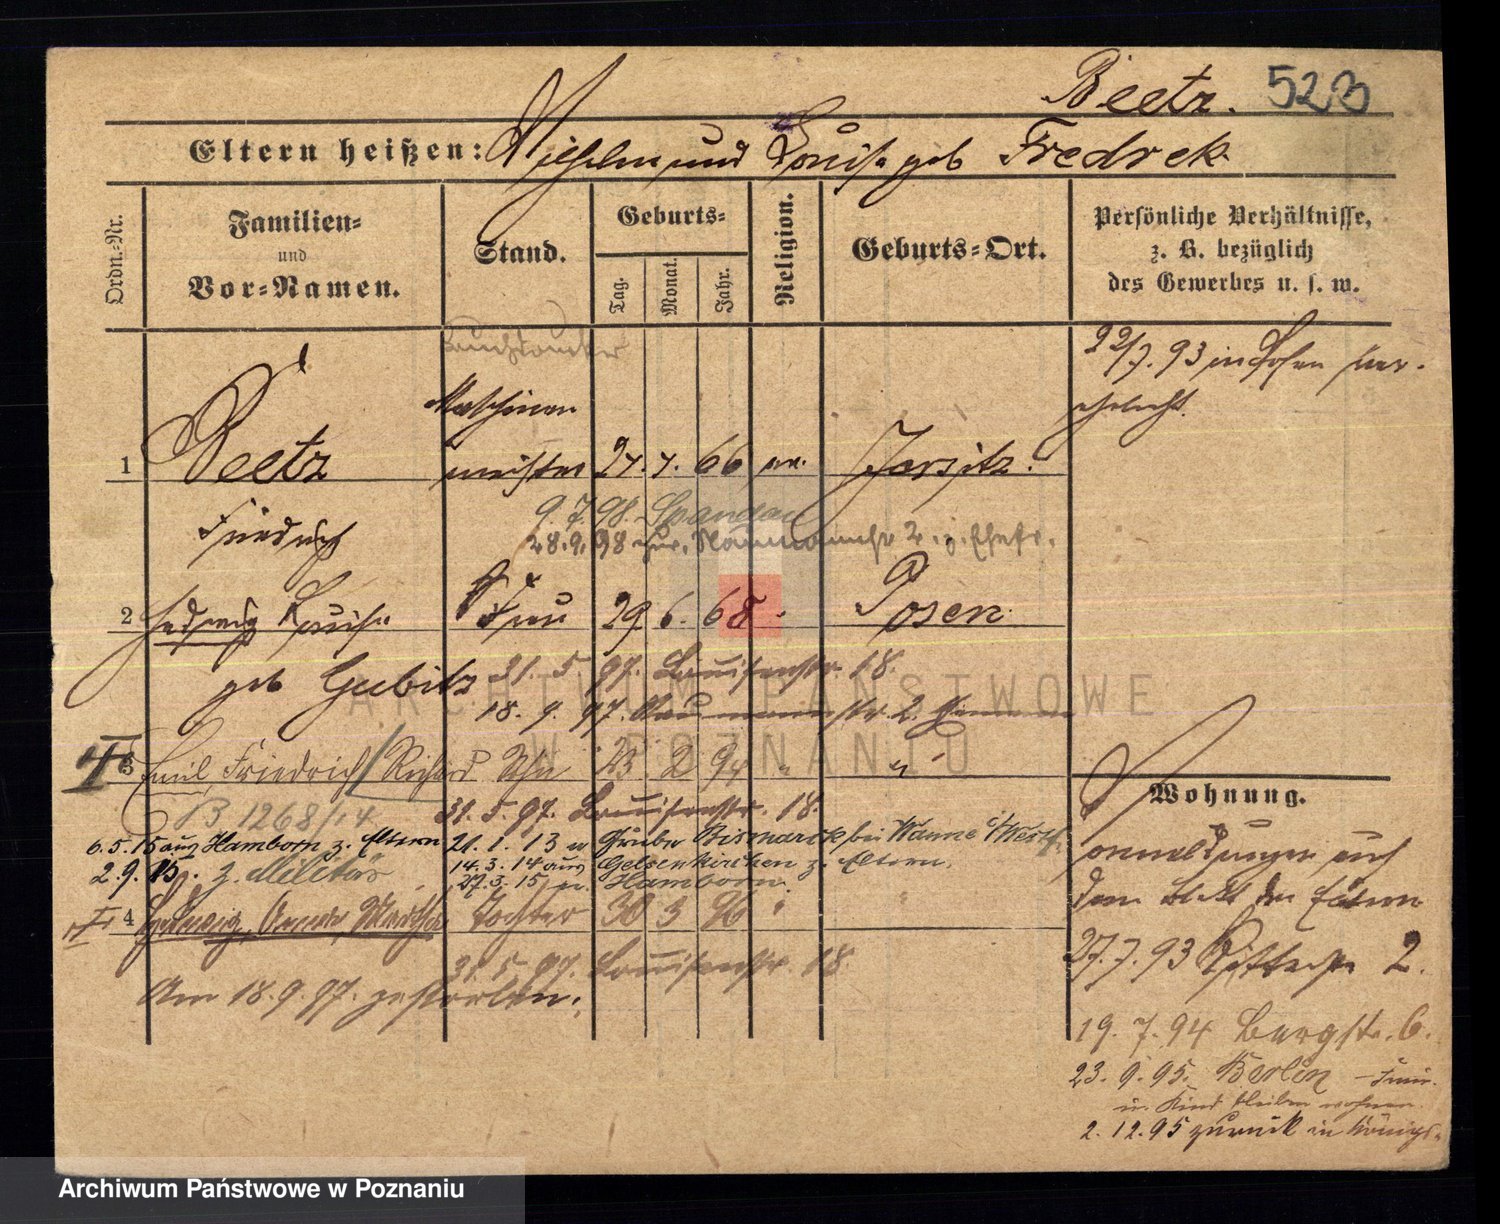 Beetz. 523
Eltern heißen: Wilhelm und Louise geb Fredrek
Ordn.-Nr.
Familien-
und
Vor-Namen.
Stand.
Geburts-
Tag.
Monat.
Jahr.
Religion.
Geburts-Ort.
Persönliche Verhältnisse,
z. B. bezüglich
des Gewerbes u. s. w.
22/7. 93 in Posen ver-
ehelicht.
Maschinen
1 Beetz meister 27. 7. 66 ev. Jersitz.
Friedrich
9. 7. 98. Spandau
28. 9. 98 zur. Naumannstr 2.
2 Hedwig Louise Frau 29 6. 68 " Posen
geb Gubitz
31. 5. 97. Louisenstr. 18.
18. 9. 97. Naumannstr 2.
3 Emil, Friedrich / Richard Sohn 23 2 94 " "
B 1268/14
31. 5. 97. Louisenstr. 18.
6. 5. 15 aus Hamborn z. Eltern
21. 1. 13 n Grube Bismarck bei Wanne i/Westf.
14. 3. 14 aus Gelsenkirchen z. Eltern.
2. 9. 15. z. Militär
27. 3. 15 n. Hamborn.
4 Hedwig, Anna, Martha Tochter 30 3 96 " "
31. 5. 97. Louisenstr. 18.
Am 18. 9. 97. gestorben.
Wohnung.
Anmeldungen auch
dem Blatt der Eltern
27. 7. 93 2.
19. 7. 94 Burgstr. 6.
23. 9. 95. Berlin – Frau
u. Kind bleiben wohnen.
2. 12. 95 zurück in Königs-
ARCHIWUM PAŃSTWOWE
W POZNANIU
Archiwum Państwowe w Poznaniu